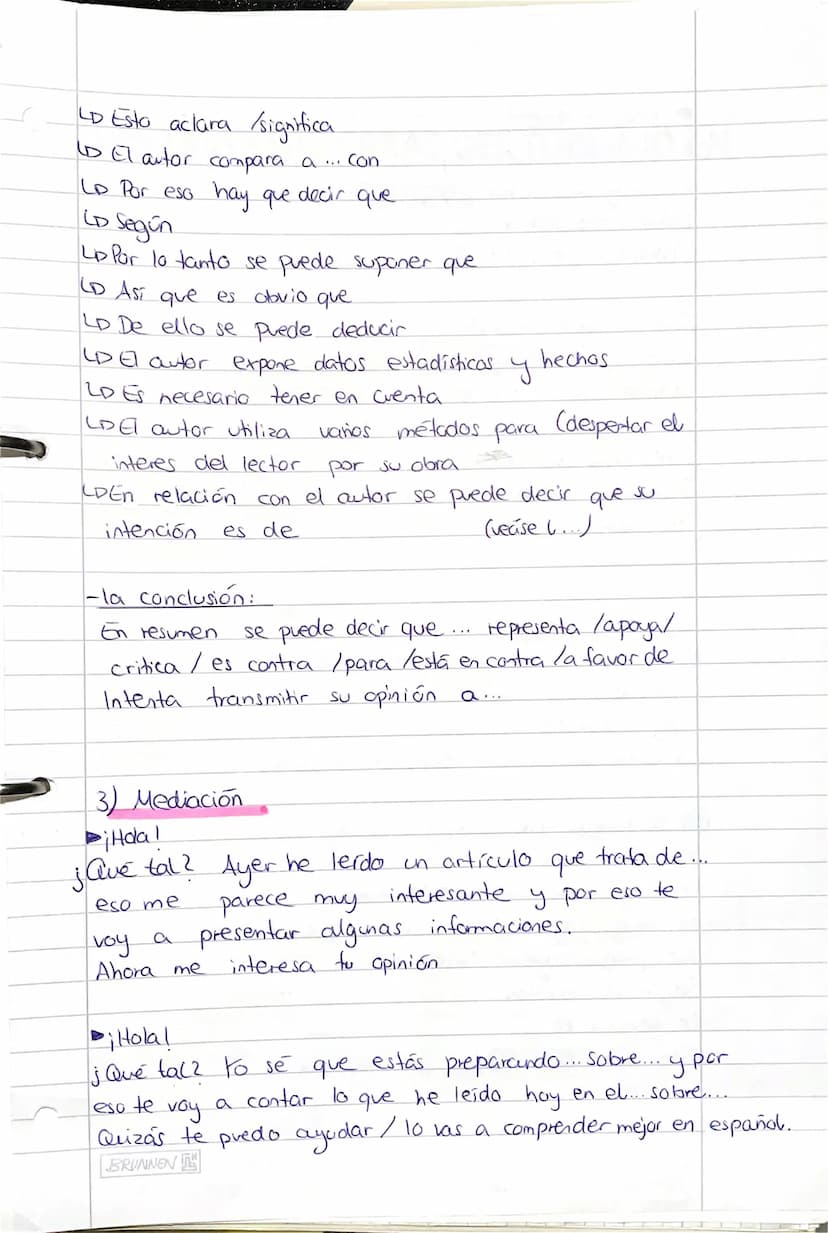 ↳ Esto aclara /significa
↳ El autor compara a ... con
↳ Por eso hay que decir que
↳ Según
↳ Por lo tanto se puede suponer que
↳ Así que es obvio que
↳ De ello se puede deducir
↳ El autor expone datos estadísticos y hechos
↳ Es necesario tener en cuenta
↳ El autor utiliza varios métodos para (despertar el
interes del lector por su obra
↳ En relación con el autor se puede decir que su
intención es de (veáse l....)
- la conclusión:
En resumen se puede decir que ... representa /apoya/
critica / es contra /para /está en contra /a favor de
Intenta transmitir su opinión a...
3) Mediación
▶ ¡Hola!
¿Qué tal? Ayer he leído un artículo que trata de ...
eso me parece muy interesante y por eso te
voy a presentar algunas informaciones.
Ahora me interesa tu opinión
▶ ¡Hola!
¿Qué tal? Yo sé que estás preparando ... sobre... y por
eso te voy a contar lo que he leído hoy en el... sobre...
Quizás te puedo ayudar / lo vas a comprender mejor en español.
BRUNNEN